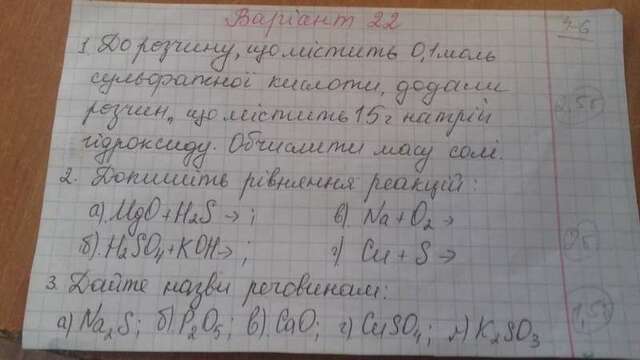 Варіант 22
1. До розчину, що містить 0,1 моль
сульфатної кислоти, додали
розчин, що містить 15 г натрій
гідроксиду. Обчислити масу солі.
2. Допишіть рівняння реакцій:
а) MgO + H2S →; в) Na + O2 →
б) H2SO4 + KOH →; г) Cu + S →
3. Дайте назви речовинам:
а) Na2S; б) P2O3; в) CaO; г) CuSO4; д) K2SO3